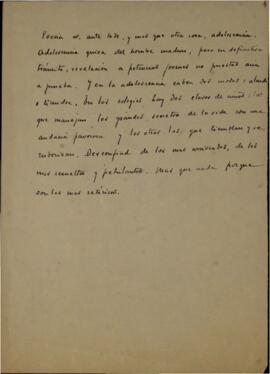 Poesía es, ante todo, y más que otra cosa, adolescencia.
Adolescencia quizá del hombre maduro, pero en definitiva
tránsito, revelación a potencial poemas no puestos aun
a prueba. Y en la adolescencia caben dos modos:
o tiemblan. En los colegios hay dos clases de niños: los
que manejan los grandes secretos de la vida con una
audacia pavorosa y los otros, los que tiemblan y se
ruborizan. Desconfiad de los mas arriesgados, de los
mas resueltos y petulantes. Mas que nada porque
son los mas retóricos.